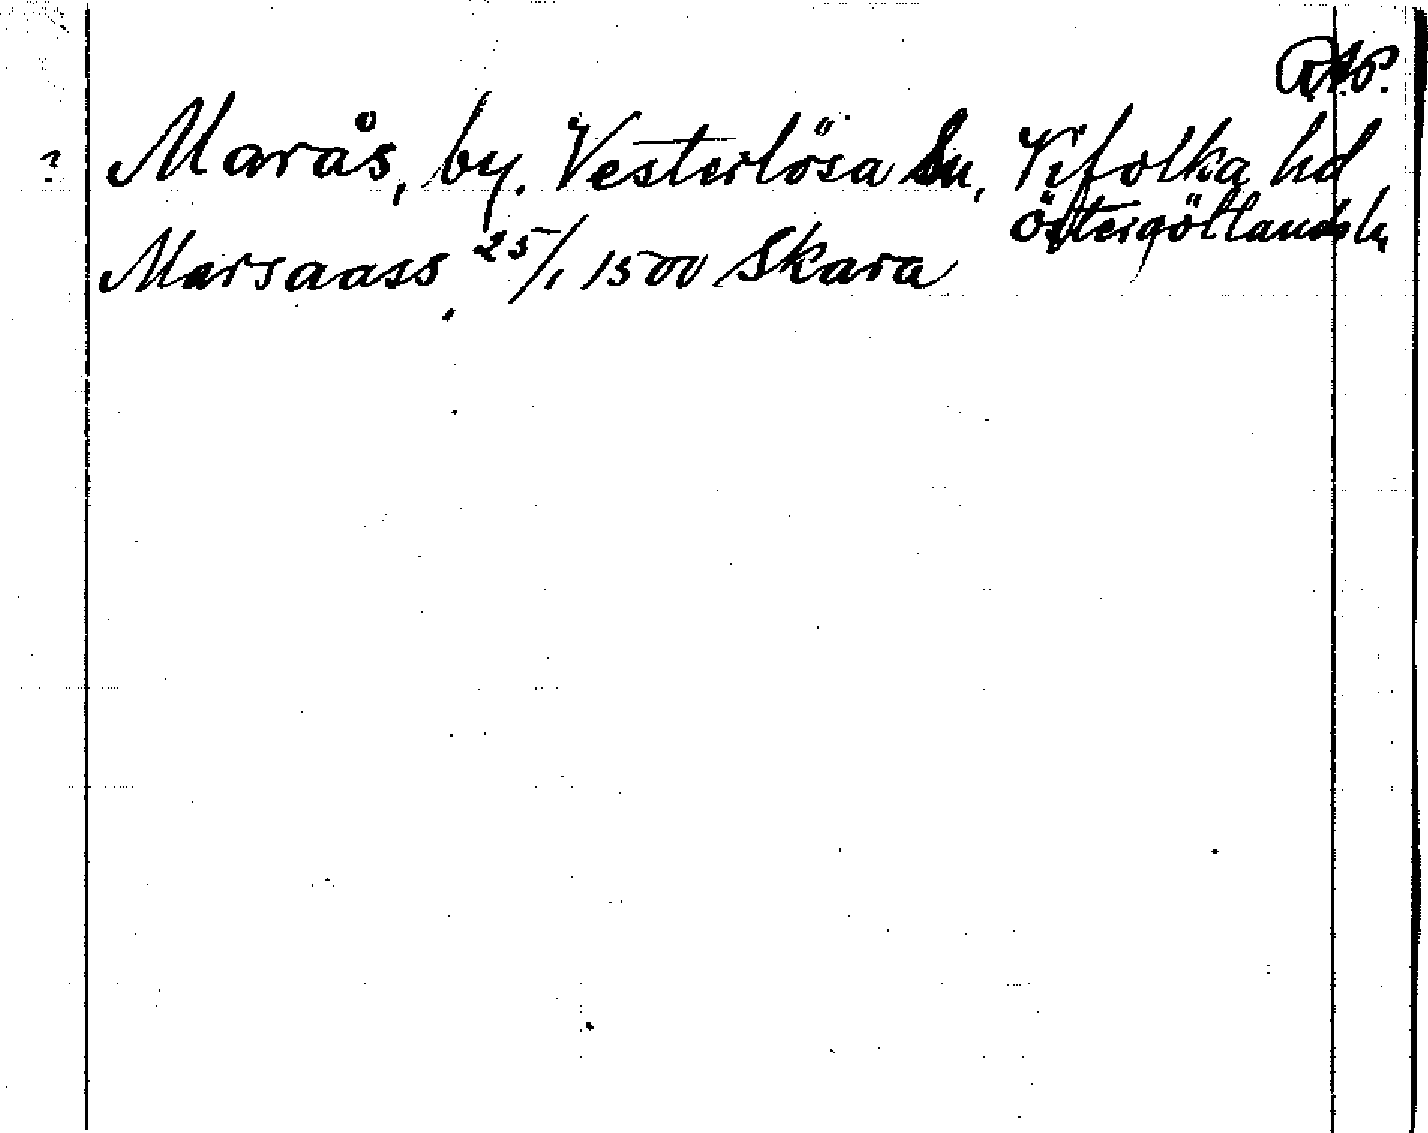 RAP.
? Marås, by. Vesterlösa sn, Vifolka hd
Östergötlands ln
Marsaass 25/1 1500 Skara